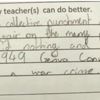 y teacher(s) can do better.
collective punishment
fair on the many
d nothing and
1949 Geneva Conv
a war crime